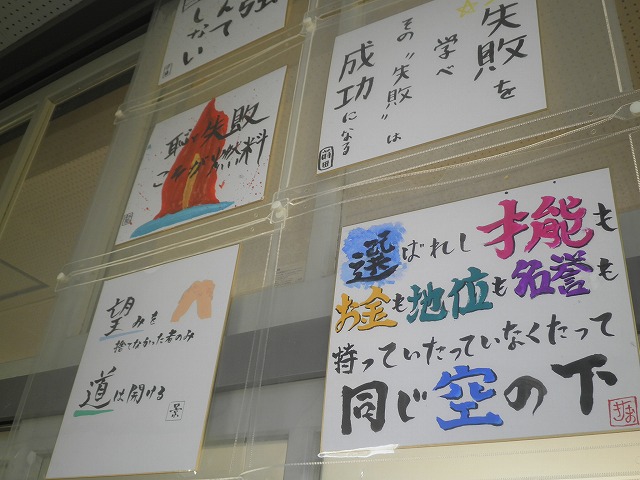 しない
失敗を
学べ
その"失敗"は
成功になる
恥、失敗
こそが燃料
望みを
捨てなかった者のみ
道は開ける
選ばれし才能も
お金も地位も名誉も
持っていたっていなくたって
同じ空の下
きお